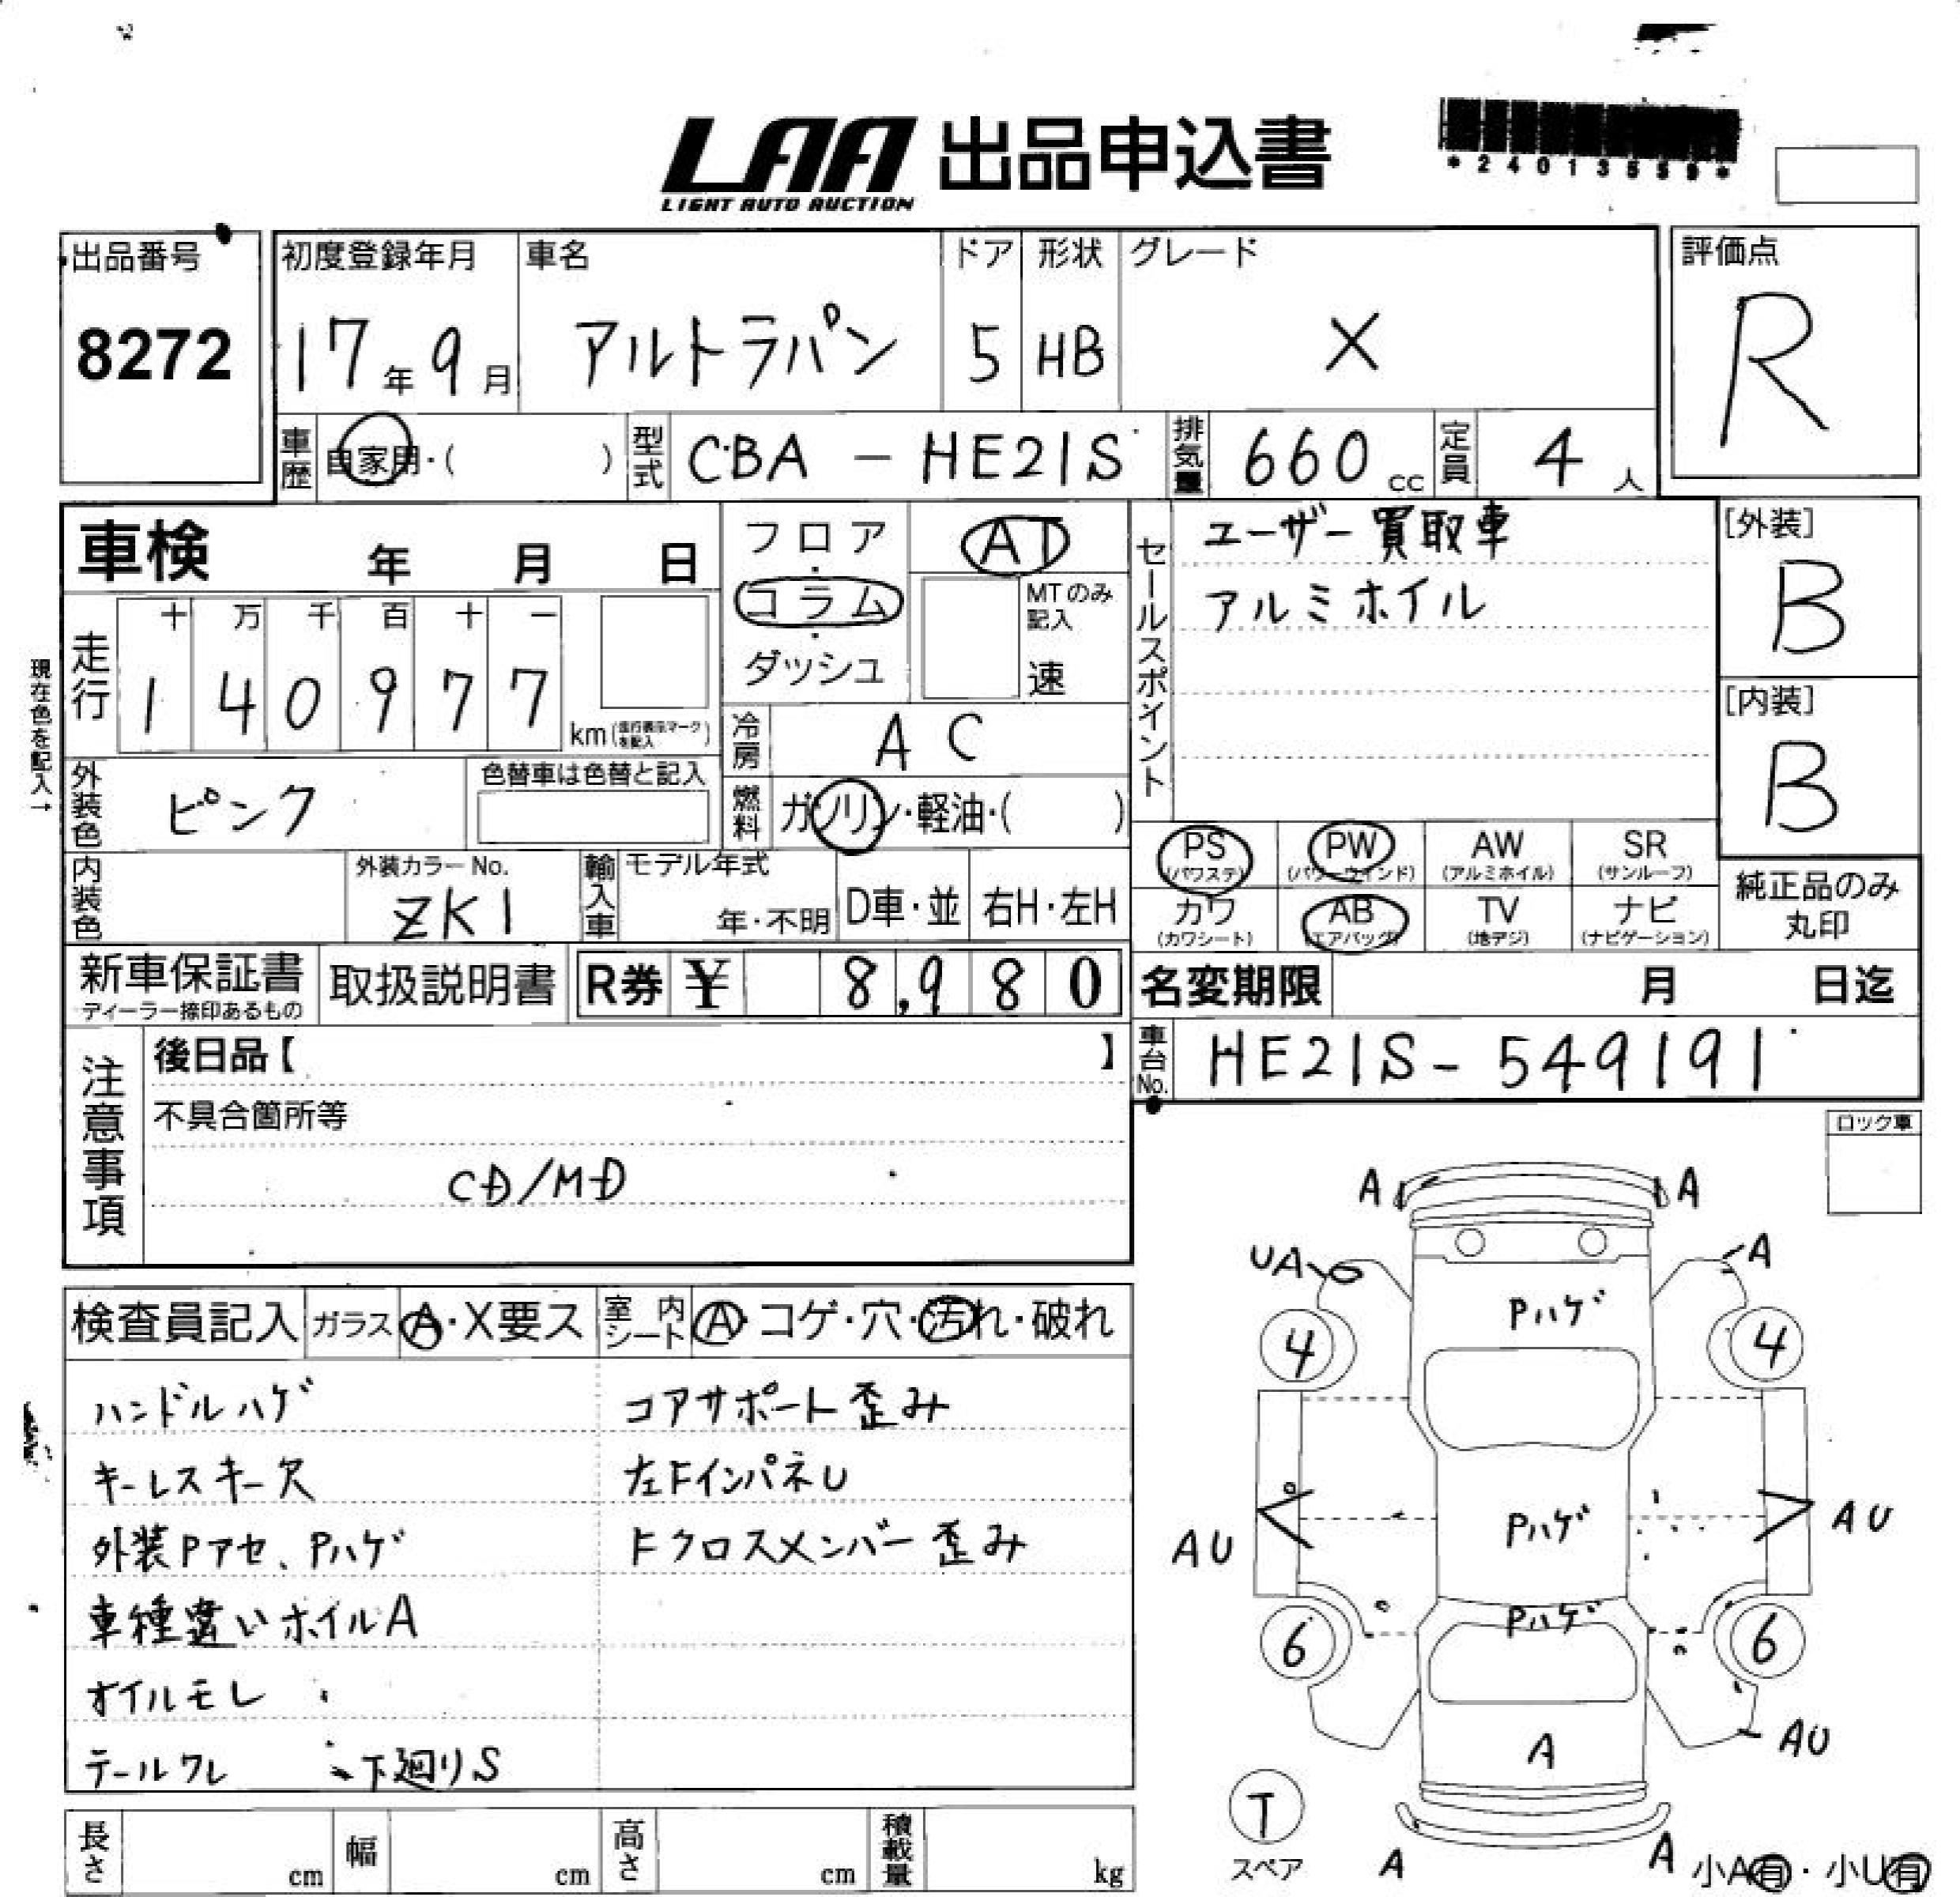 LAA 出品申込書
LIGHT AUTO AUCTION
*24013559*
出品番号
8272
初度登録年月
17年9月
車名
アルトラパン
ドア
5
形状
HB
グレード
X
評価点
R
車歴
自家用・( )
型式
CBA - HE21S
排気量
660 cc
定員
4 人
車検 年 月 日
現在色を記入→
走行
十 万 千 百 十 一
1 4 0 9 7 7
km(走行表示マークを記入)
フロア・コラム・ダッシュ
AT
MTのみ記入
速
冷房
AC
燃料
ガソリン・軽油・( )
セールスポイント
ユーザー買取車
アルミホイル
[外装]
B
[内装]
B
外装色
ピンク
色替車は色替と記入
内装色
外装カラーNo.
ZK1
輸入車
モデル年式
年・不明
D車・並
右H・左H
PS (パワステ)
PW (パワーウインド)
AW (アルミホイル)
SR (サンルーフ)
カワ (カワシート)
AB (エアバッグ)
TV (地デジ)
ナビ (ナビゲーション)
純正品のみ丸印
新車保証書
ディーラー捺印あるもの
取扱説明書
R券 ¥ 8,980
名変期限 月 日迄
車台No.
HE21S-549191
注意事項
後日品【 】
不具合箇所等
CD/MD
ロック車
検査員記入
ガラス
A・X要ス
室内シート
A・コゲ・穴・汚れ・破れ
ハンドルハゲ
キーレスキー欠
外装Pアセ、Pハゲ
車種違いホイルA
オイルモレ
テールワレ
下廻りS
コアサポート歪み
左FインパネU
Fクロスメンバー歪み
A
A
UA
A
Pハゲ
4
4
Pハゲ
AU
AU
Pハゲ
6
6
A
AU
T
スペア
A
A
小A有・小U有
長さ cm
幅 cm
高さ cm
積載量 kg